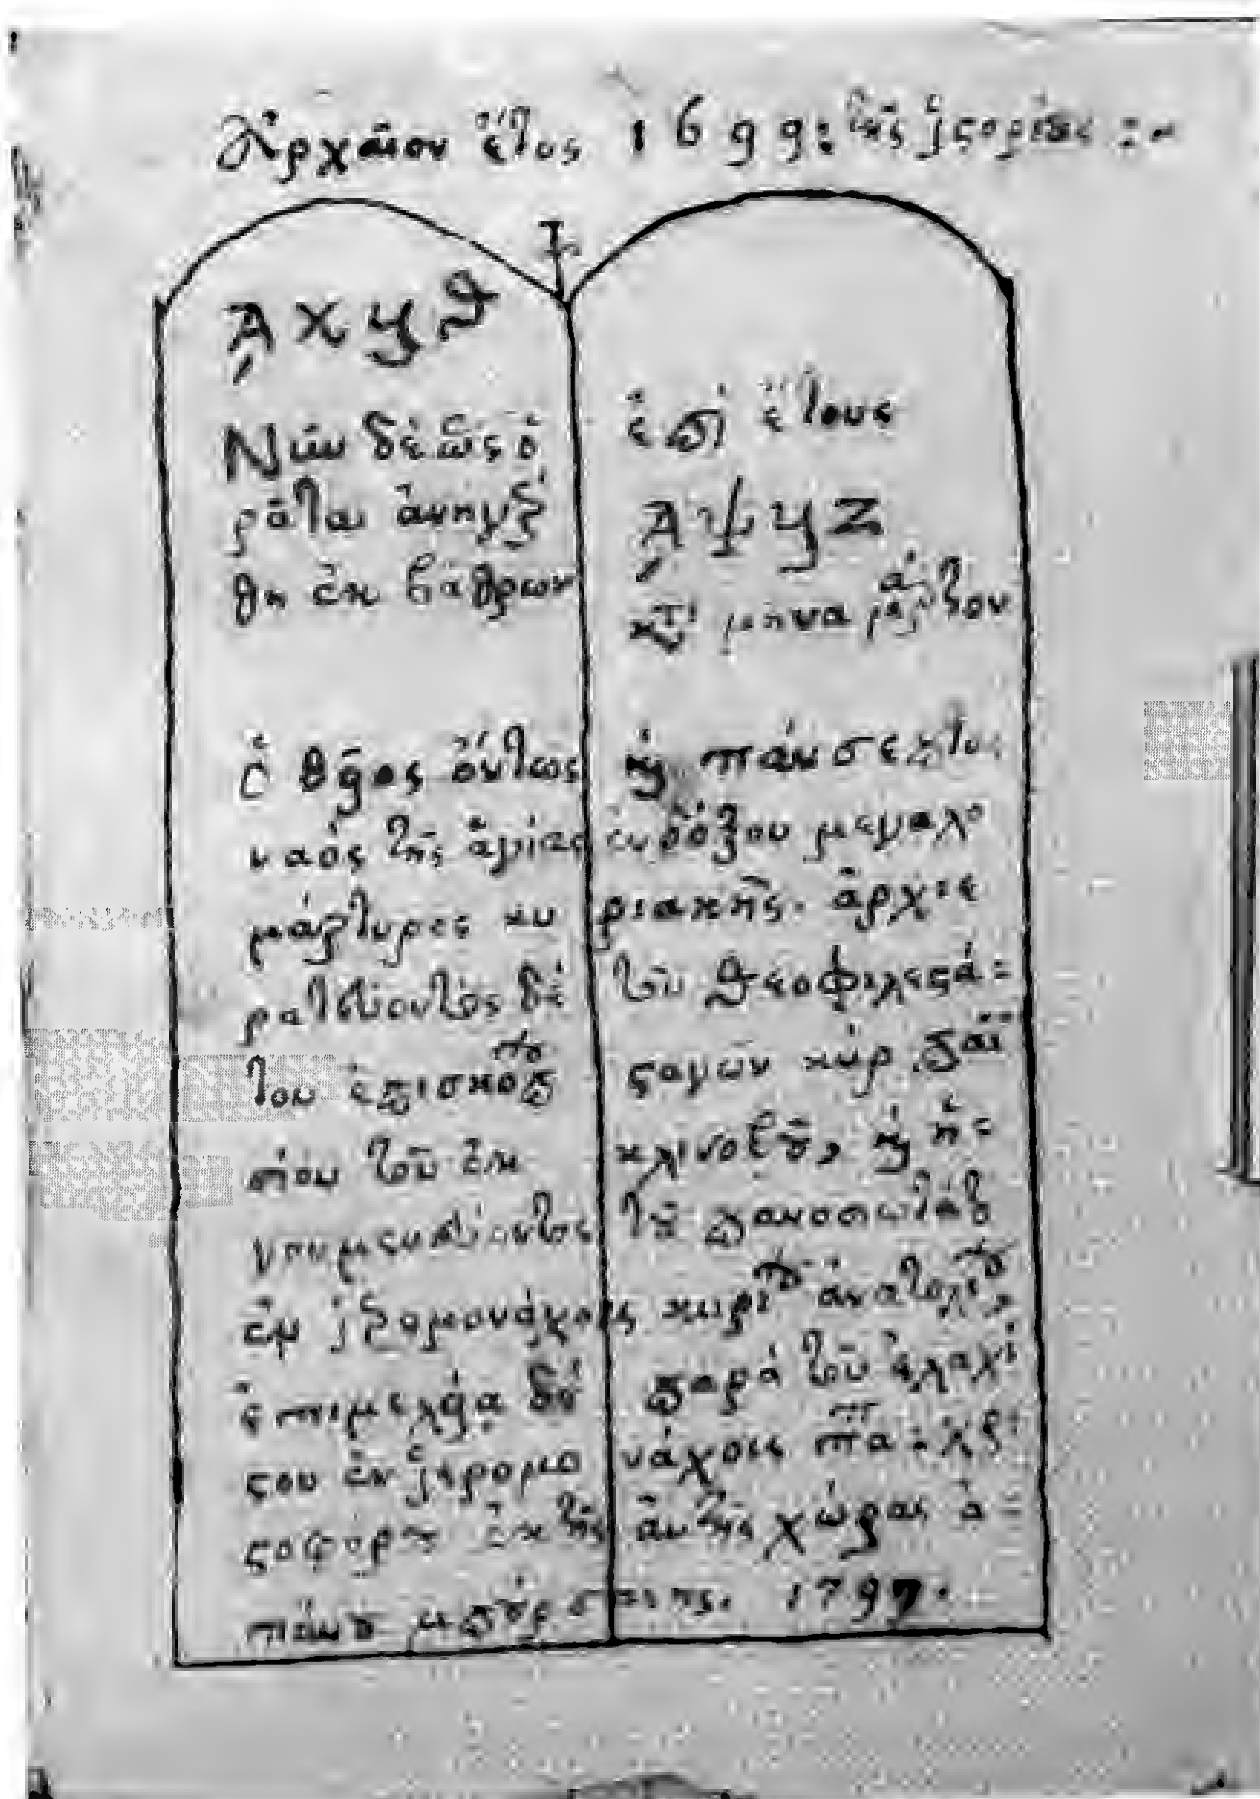 Ἀρχαῖον ἔτος 1699: τῆς ἱστορίας :~
͵ΑΧϞΘ
Νῦν δὲ ὡς ὁ
ρᾶται ἀνηγέρ
θη ἐκ βάθρων
ἐπὶ ἔτους
͵ΑΨϞΖ
κατὰ μῆνα μάρτιον
Ὁ θεῖος ὄντως καὶ πάνσεπτος
ναὸς τῆς ἁγίας ἐνδόξου μεγαλο
μάρτυρος κυριακῆς. ἀρχιε
ρατεύοντος δὲ τοῦ θεοφιλεστά=
του ἐπισκόπου σταγῶν κὺρ παϊ
σίου τοῦ ἐκ κλινοβοῦ, καὶ ἡ=
γουμενεύοντος τοῦ πανοσιωτάτου
ἐν ἱερομονάχοις κυρίου ἀνατολίου,
ἐπιμελείᾳ δὲ παρὰ τοῦ ἐλαχί
στου ἐν ἱερομονάχοις παπᾶ: χρι
στοφόρου ἐκ τῆς αὐτῆς χώρας ἀ=
1797.